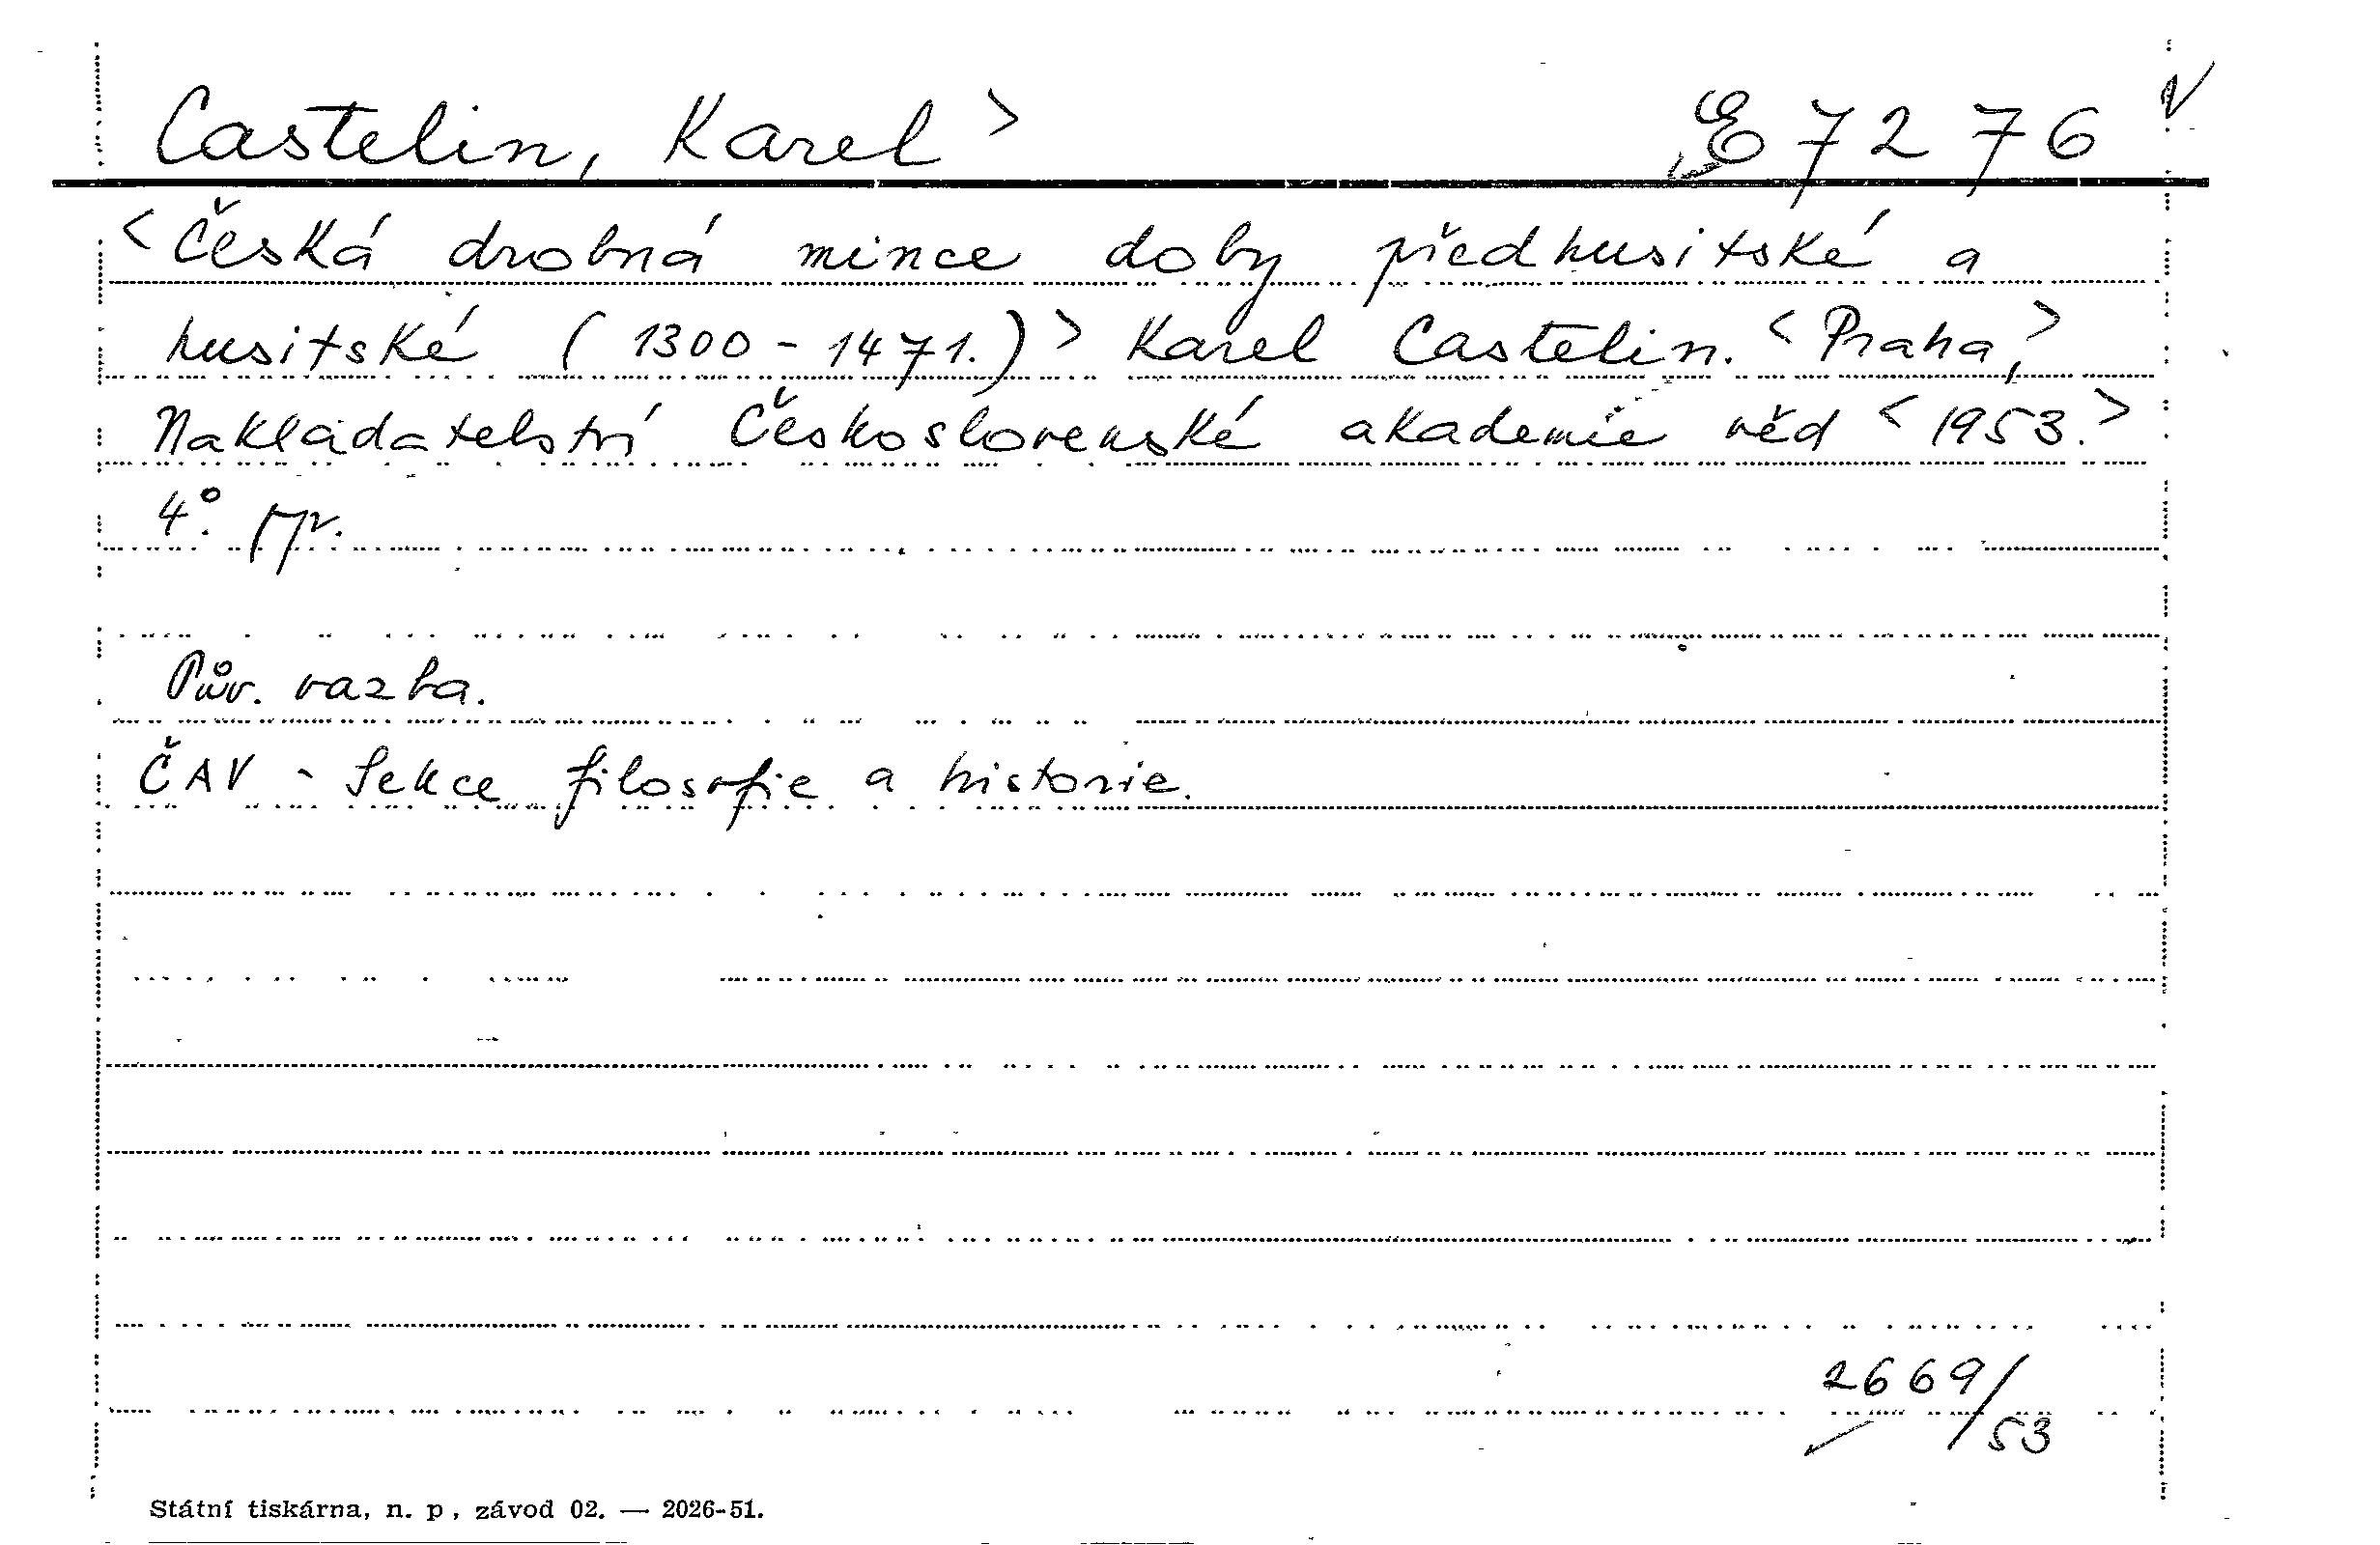 Castelin, Karel > E 7276
< Česká drobná mince doby předhusitské a
husitské (1300 - 1471.) > Karel Castelin. < Praha, >
Nakladatelství Československé akademie věd < 1953. >
4°.
Pův. vazba.
ČAV - Sekce filosofie a historie.
2669/53
Státní tiskárna, n. p., závod 02. — 2026-51.